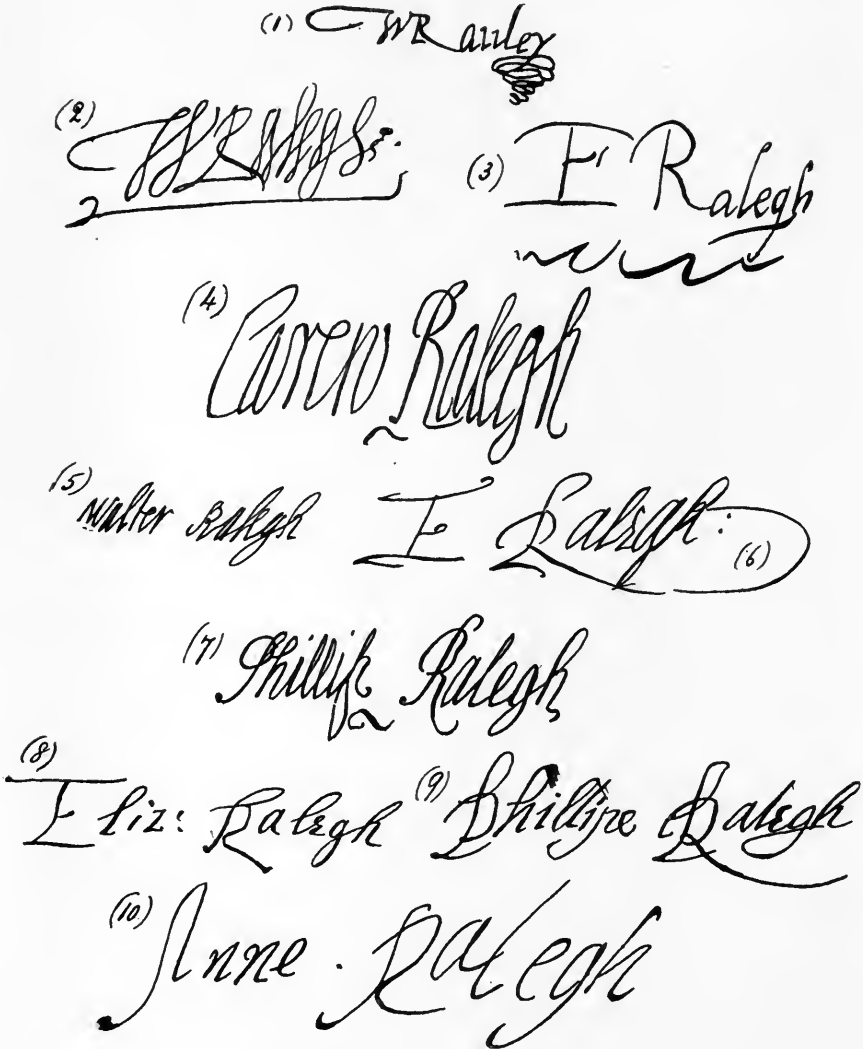 (1) WRauley
(2) WRalegh:
(3) E Ralegh
(4) Carew Ralegh
(5) Walter Ralegh
E Ralegh: (6)
(7) Phillip Ralegh
(8) Eliz: Ralegh
(9) Phillipe Ralegh
(10) Anne . Ralegh